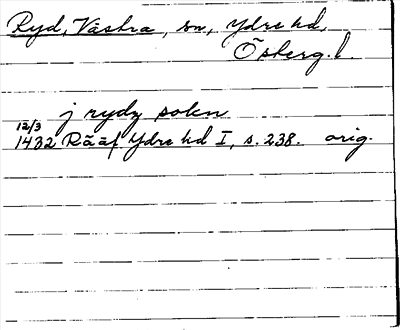 Ryd, Västra, sn, Ydre hd,
Östergl.
j rydz sokn
12/3
1432 Rääf Ydre hd I, s. 238. orig.